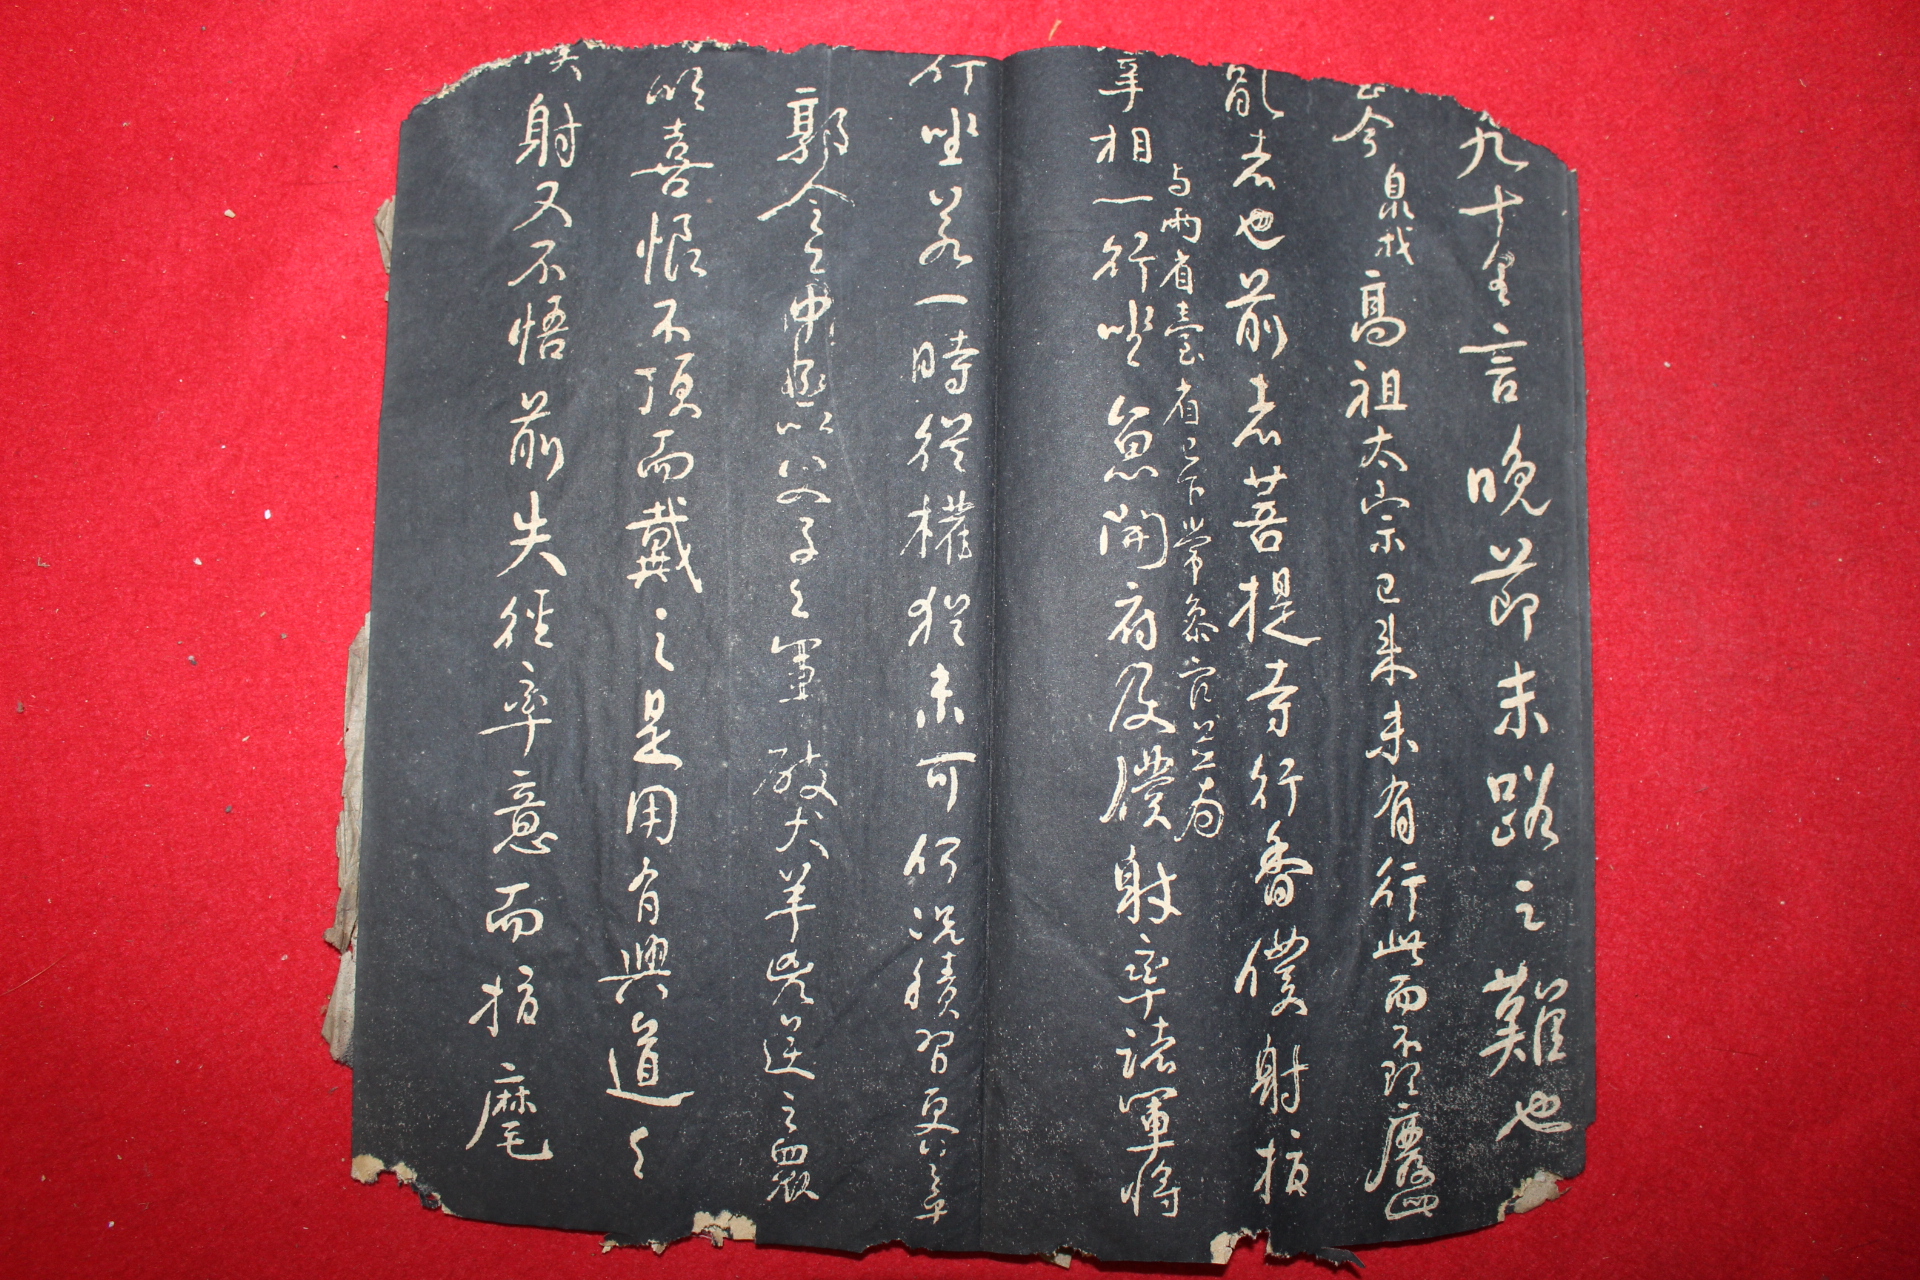 九十里言晚節末路之難也
至今泉我高祖太宗已來未有行此而不理廢此
亂者也前者菩提寺行香僕射指
与兩省臺省已下常參官並為
宰相一行坐魚開府及僕射率諸軍將
行坐若一時從權猶未可何況積習更行之乎
郭令公以父子之軍破犬羊兇逆之眾
欣喜恨不頂而戴之是用有興道之
射又不悟前失徑率意而指麾